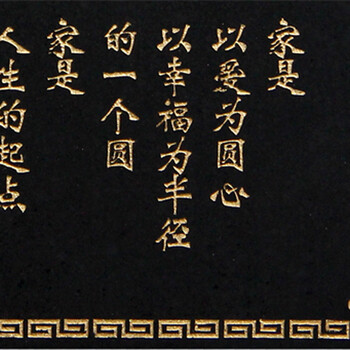 家是
以爱为圆心
以幸福为半径
的一个圆
家是
人生的起点